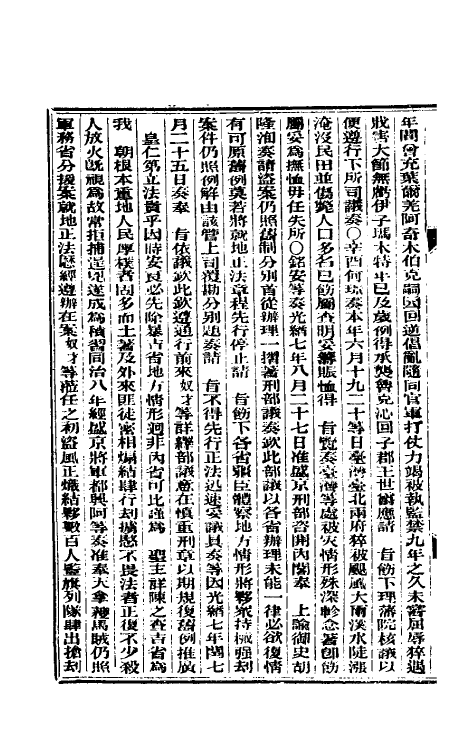 年間曾充葉爾羌阿奇木伯克嗣因回逆倡亂隨同官軍打仗力竭被執監禁九年之久未嘗屈辱猝遇
戕害大節無虧伊子瑪木特卽已及歲例得承襲魯克沁回子郡王世爵應請　旨飭下理藩院核議以
便遵行下所司議奏〇辛酉何璟奏本年六月十九二十等日臺灣臺北兩府猝被颶風大雨溪水陡漲
淹沒民田並傷斃人口多名已飭屬查明妥籌賑恤得　旨覽奏臺灣等處被災情形殊深軫念著卽飭
屬妥爲撫恤毋任失所〇銘安等奏光緒七年八月二十七日准盛京刑部咨開內閣奉　上諭御史胡
隆洵奏請盜案仍照舊制分別首從辦理一摺著刑部議奏欽此欽部議以各省辦理未能一律必欲復情
有可原舊例莫若將就地正法章程先行停止請　旨飭下各省疆臣體察地方情形將夥衆持械强劫
案件仍照例解由該管上司覆勘分別題奏請　旨不得先行正法迅速妥議具奏等因光緒七年閏七
月二十五日奏奉　旨依議欽此欽遵通行前來奴才等詳繹部議意在愼重刑章以期規復舊例推廣
皇仁第立法貴乎因時安良必先除暴吉省地方情形迥非內省可比謹爲　聖主詳陳之查吉省爲
我　朝根本重地人民厚樸者固多而土著及外來匪徒密相煽結肆行刦擄憨不畏法者正復不少殺
人放火旣視爲故常拒捕逞兇遂成爲積習同治八年經盛京將軍都興阿等奏准奉天拿獲馬賊仍照
軍務省分援案就地正法歷經遵辦在案奴才等蒞任之初盜風正熾結夥數百人豎旗列隊肆出搶刦